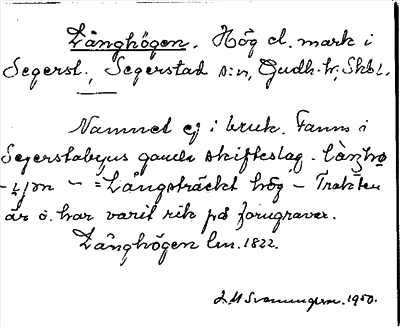 Långhögen. Hög el. mark i
Segerst., Segerstad s:n, Gudh. hr; Skbl.
Namnet ej i bruk. Fanns i
Segerstabyns gamla skifteslag.
= Långsträckt hög – Trakten
är o. har varit rik på forngravar.
Långhögen lm. 1822.
1950.